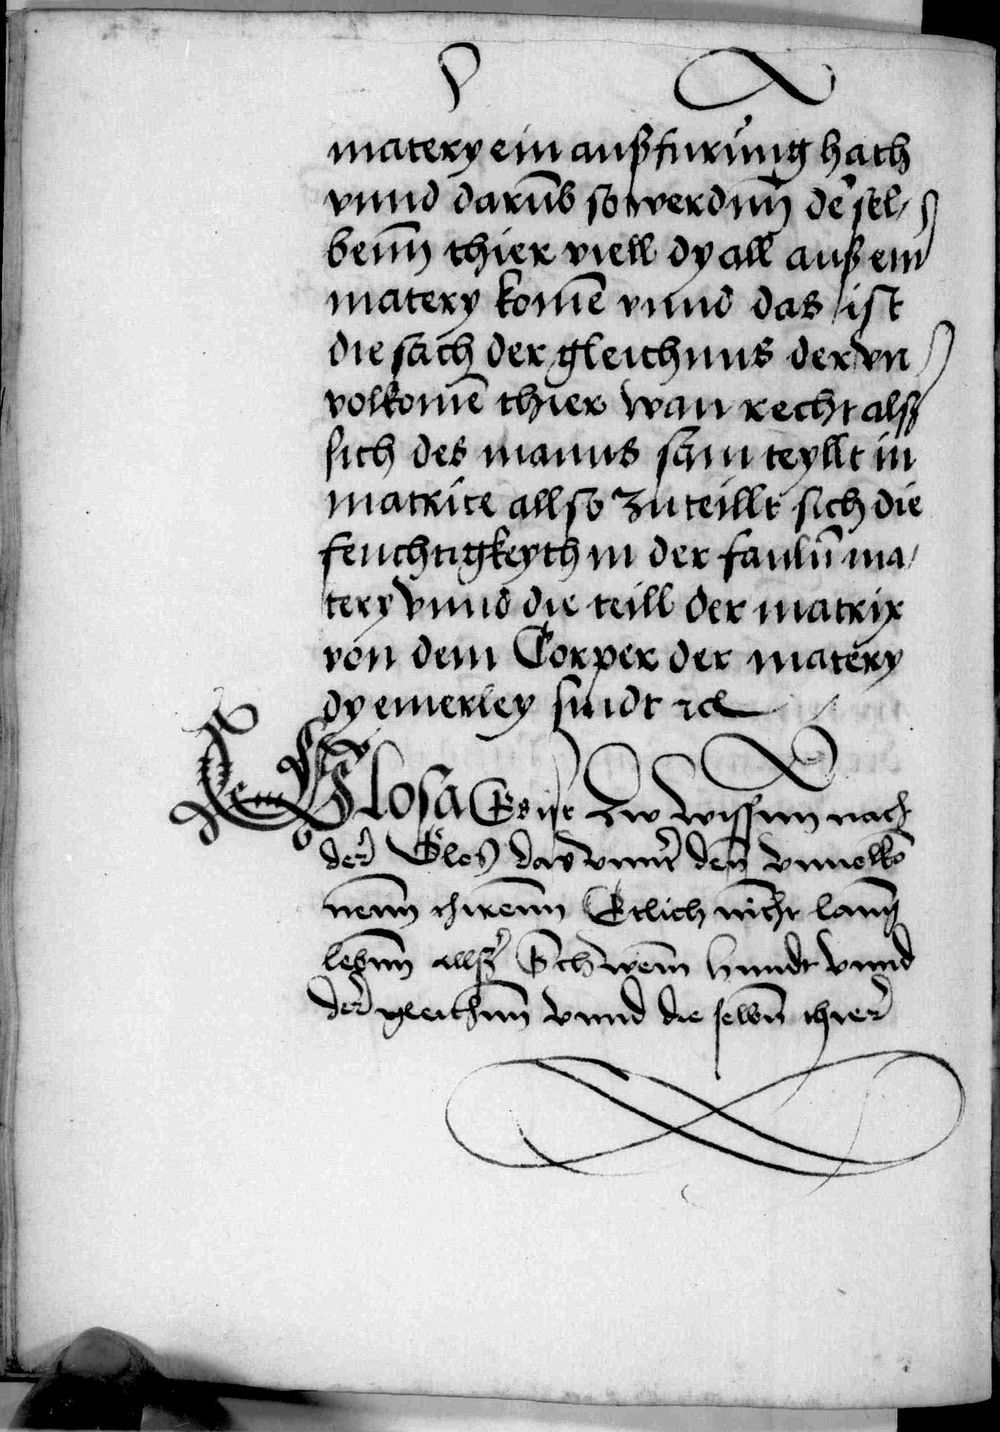 matery ein außfurung hath
vnnd darūb so werdnn̄ de᷑ sel-
benn̄ thier viell dy all auß ein
matery komē vnnd das ist
die sach der gleichnus der vn
volkomē thier wan recht alß
sich des manns sam teyllt in
matrice allso zuteillt sich die
feuchtigkeyth in der faulū ma-
tery vnnd die teill der matrix
von dem Corper der matery
dy einerley sindt ꝛc
Item Glosa Es ist zw wissnn nach
der Glos das vnnt᷑ den̄ vnuolko
nenn̄ thirenn̄ Etlich nicht lanng
lebnn̄ allß Schwein̄ hundt vnnd
der gleichnn̄ vnnd die selbn̄ thier